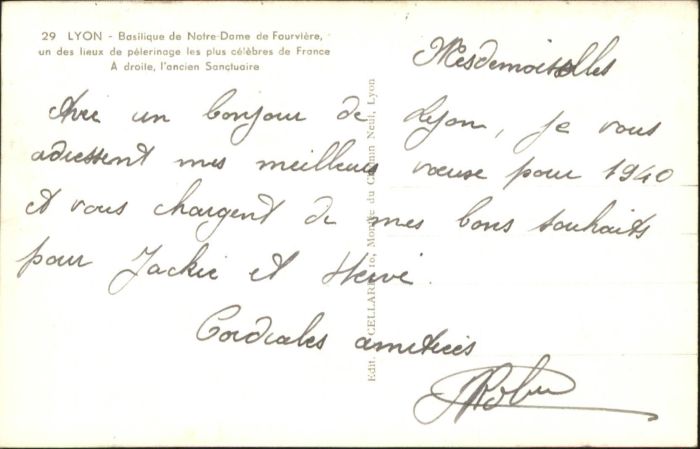 29 LYON - Basilique de Notre-Dame de Fourvière,
un des lieux de pèlerinage les plus célèbres de France
A droite, l'ancien Sanctuaire
Mesdemoiselles
Avec un bonjour de Lyon, je vous
adressent mes meilleurs vœux pour 1940
et vous chargent de mes bons souhaits
pour Jackie et Hervé.
Cordiales amitiés
Edit. CELLARD, Montée du Chemin Neuf, Lyon